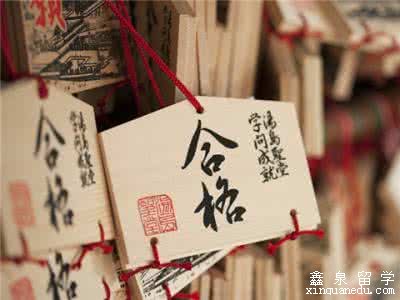 合格
湯島聖堂
学問成就
合格
湯島聖堂
学問成就
合
願
鑫泉留学
xinquanedu.com